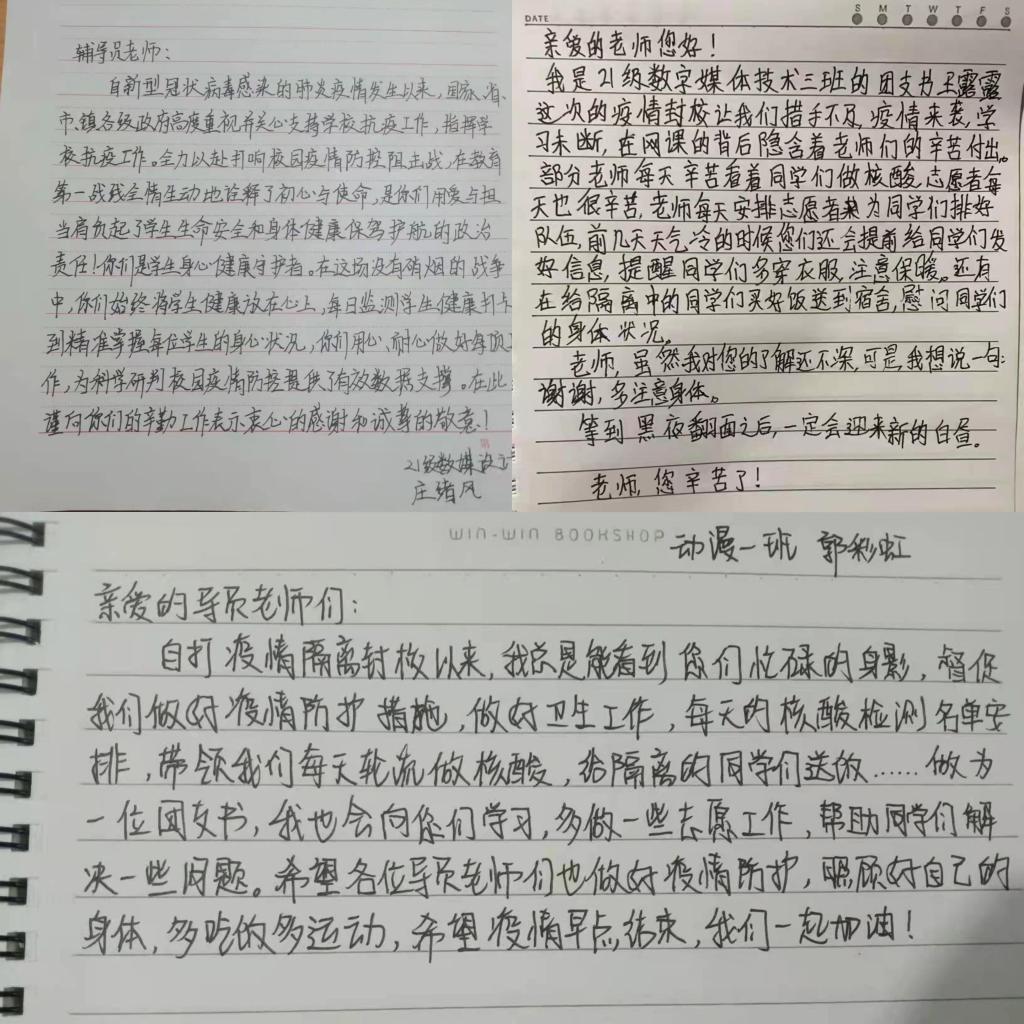 辅导员老师：
自新型冠状病毒感染的肺炎疫情发生以来，国家、省、
市、镇各级政府高度重视并关心支持学校抗疫工作，指挥学
校抗疫工作。全力以赴打响校园疫情防控阻击战，在教育
第一战线全情生动地诠释了初心与使命，是你们用爱与担
当肩负起了学生生命安全和身体健康保驾护航的政治
责任！你们是学生身心健康守护者。在这场没有硝烟的战争
中，你们始终将学生健康放在心上，每日监测学生健康打卡
到精准掌握每位学生的身心状况，你们用心、耐心做好每项工
作，为科学研判校园疫情防控提供了有效数据支撑。在此
谨向你们的辛勤工作表示衷心的感谢和诚尊的敬意！
21级数媒设
庄绪风
DATE
S M T W T F S
亲爱的老师您好！
我是21级数字媒体技术三班的团支书王露露
这次的疫情封校让我们措手不及，疫情来袭，学
习未断，在网课的背后隐含着老师们的辛苦付出。
部分老师每天辛苦看着同学们做核酸，志愿者每
天也很辛苦，老师每天安排志愿者来为同学们排好
队伍，前几天天气冷的时候您们还会提前给同学们发
好信息，提醒同学们多穿衣服，注意保暖。还有
在给隔离中的同学们买好饭送到宿舍，慰问同学们
的身体状况。
老师，虽然我对您的了解还不深，可是，我想说一句：
谢谢，多注意身体。
等到黑夜翻面之后，一定会迎来新的白昼。
老师，您辛苦了！
WIN-WIN BOOKSHOP
动漫一班 郭彩虹
亲爱的导员老师们：
自打疫情隔离封校以来，我总是能看到您们忙碌的身影，督促
我们做好疫情防护措施，做好卫生工作，每天的核酸检测名单安
排，带领我们每天轮流做核酸，给隔离的同学们送饭……做为
一位团支书，我也会向您们学习，多做一些志愿工作，帮助同学们解
决一些问题。希望各位导员老师们也做好疫情防护，照顾好自己的
身体，多吃饭多运动，希望疫情早点结束，我们一起加油！